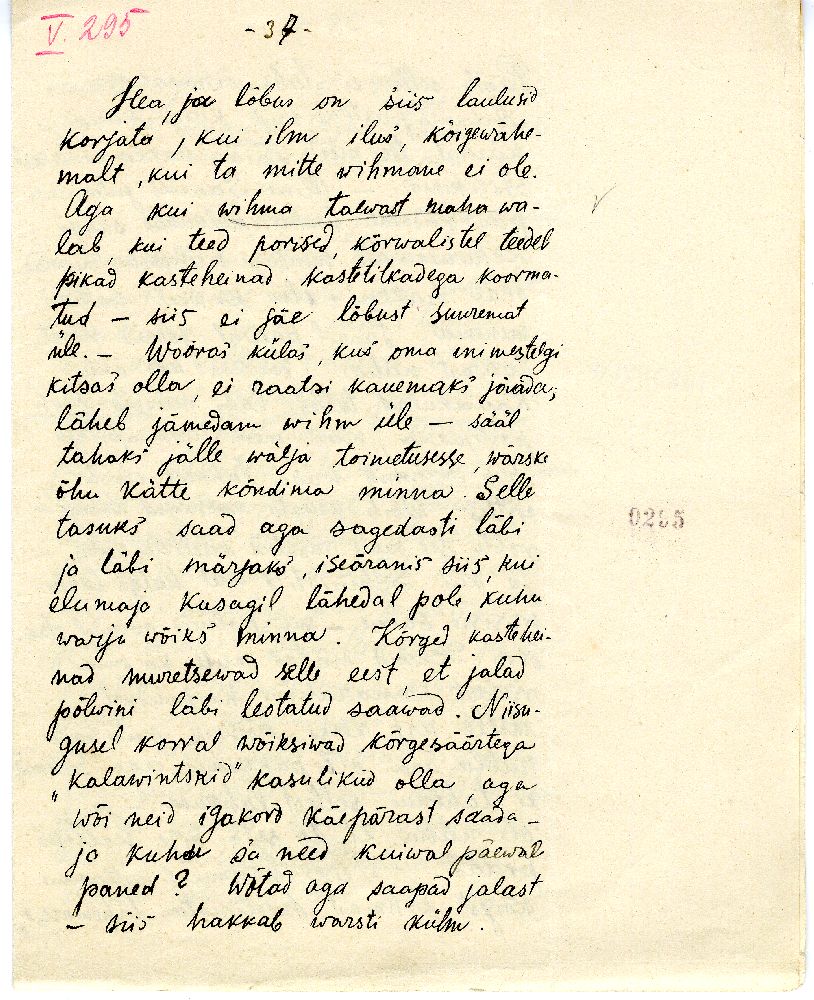 V. 295
- 37 -
Hea, ja lõbus on siis laulusid
korjata, kui ilm ilus, kõigewähe-
malt, kui ta mitte wihmane ei ole.
Aga kui wihma taewast maha wa-
lab, kui teed porised, kõrwalistel teedel
pikad kasteheinad kastetilkadega koorma-
tud — siis ei jäe lõbust suuremat
üle. — Wõõras külas, kus oma inimestelgi
kitsas olla, ei raatsi kauemaks jääda;
läheb jämedam wihm üle — sääl
tahaks jälle wälja toimetusesse, wärske
õhu kätte kõndima minna. Selle
tasuks saad aga sagedasti läbi
ja läbi märjaks, iseäranis siis, kui
elumaja kusagil lähedal pole, kuhu
warju wõiks minna. Kõrged kastehei-
nad muretsewad selle eest, et jalad
põlwini läbi leotatud saawad. Niisu-
gusel korral wõiksiwad kõrgesäärtega
"kalawintskid" kasulikud olla, aga
wõi neid igakord käepärast saada —
ja kuhu sa need kuiwal päewal
paned? Wõtad aga saapad jalast
— siis hakkab warsti külm.
0295